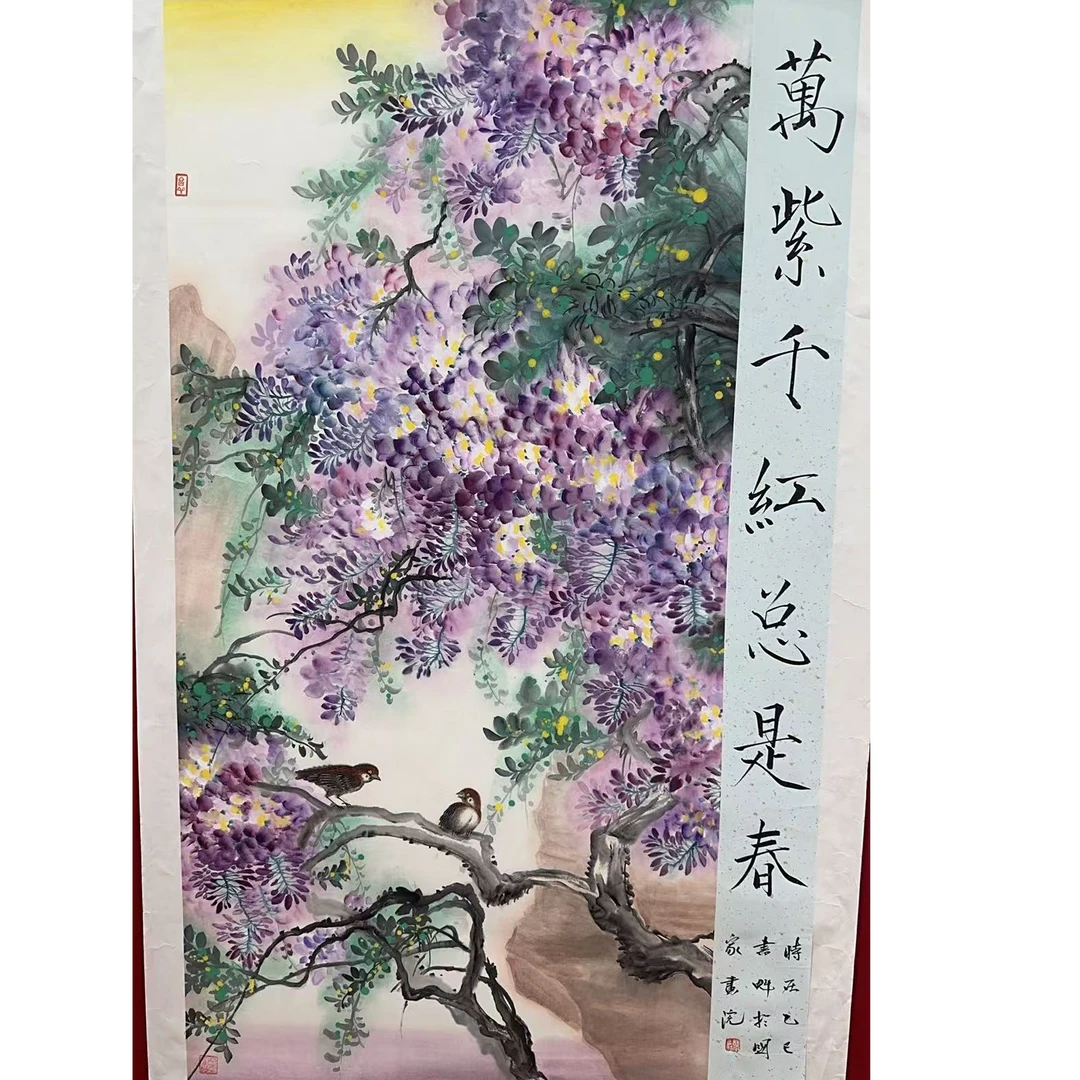 萬紫千紅总是春
時在乙巳
書於國
家畫院